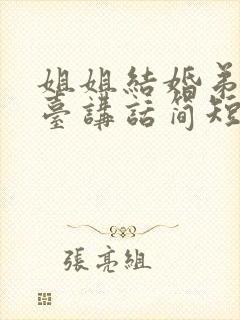 姐姐結婚弟
臺講話简短
張亮組